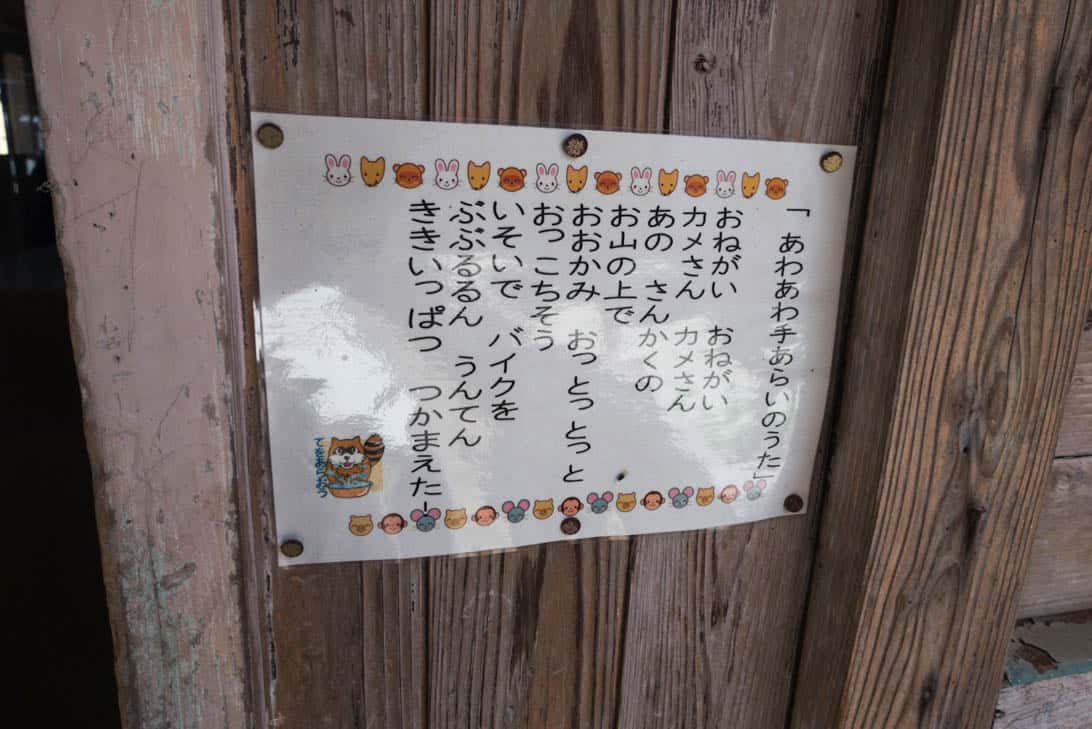 「あわあわ手あらいのうた」
おねがい　おねがい
カメさん　カメさん
あの　さんかくの
お山の上で
おおかみ　おっ とっ とっ と
おっ こちそう
いそいで　バイクを
ぶぶるるん　うんてん
ききいっぱつ　つかまえたー
てをあらおう